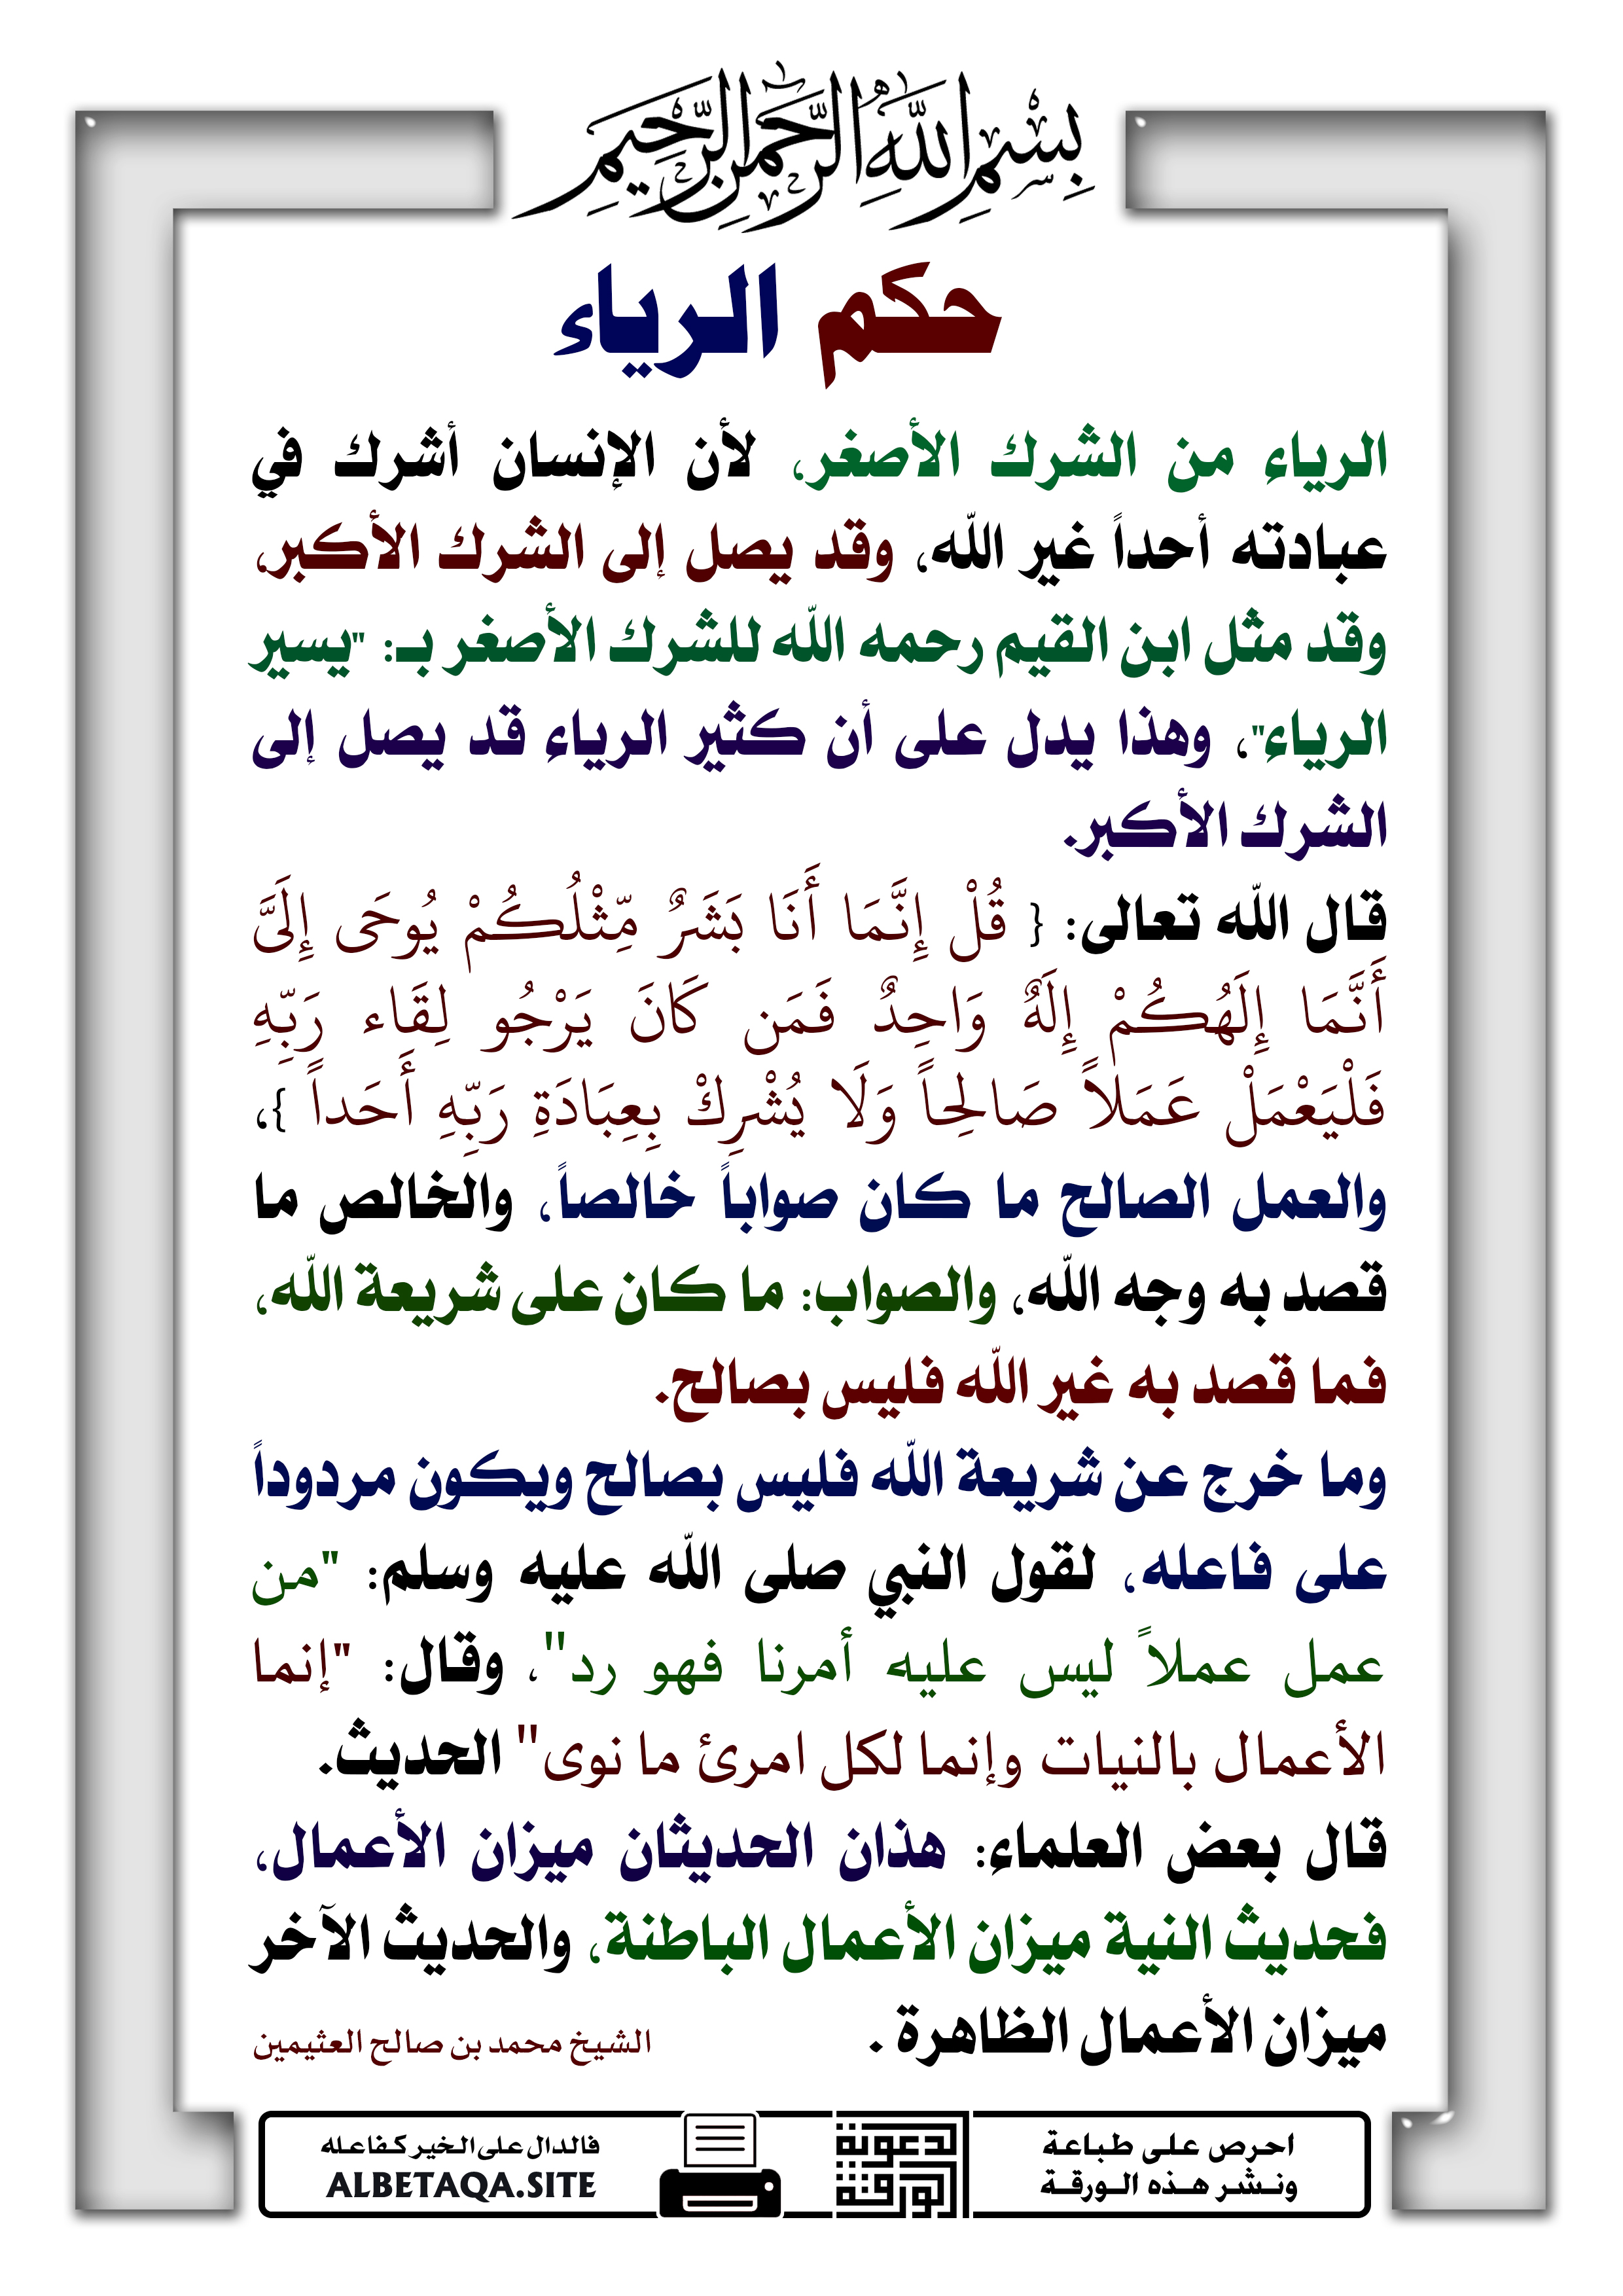 بِسْمِ اللَّهِ الرَّحْمَٰنِ الرَّحِيمِ
حكم الرياء
الرياء من الشرك الأصغر، لأن الإنسان أشرك في
عبادته أحداً غير الله، وقد يصل إلى الشرك الأكبر،
وقد مثل ابن القيم رحمه الله للشرك الأصغر بـ: "يسير
الرياء"، وهذا يدل على أن كثير الرياء قد يصل إلى
الشرك الأكبر.
قال الله تعالى: { قُلْ إِنَّمَا أَنَا بَشَرٌ مِّثْلُكُمْ يُوحَى إِلَيَّ
أَنَّمَا إِلَهُكُمْ إِلَهٌ وَاحِدٌ فَمَن كَانَ يَرْجُو لِقَاء رَبِّهِ
فَلْيَعْمَلْ عَمَلاً صَالِحاً وَلَا يُشْرِكْ بِعِبَادَةِ رَبِّهِ أَحَداً }،
والعمل الصالح ما كان صواباً خالصاً، والخالص ما
قصد به وجه الله، والصواب: ما كان على شريعة الله،
فما قصد به غير الله فليس بصالح.
وما خرج عن شريعة الله فليس بصالح ويكون مردوداً
على فاعله، لقول النبي صلى الله عليه وسلم: "من
عمل عملاً ليس عليه أمرنا فهو رد"، وقال: "إنما
الأعمال بالنيات وإنما لكل امرئ ما نوى" الحديث.
قال بعض العلماء: هذان الحديثان ميزان الأعمال،
فحديث النية ميزان الأعمال الباطنة، والحديث الآخر
ميزان الأعمال الظاهرة .
الشيخ محمد بن صالح العثيمين
احرص على طباعة
ونشر هذه الورقة
الورقة
الدعوية
فالدال على الخير كفاعله
ALBETAQA.SITE